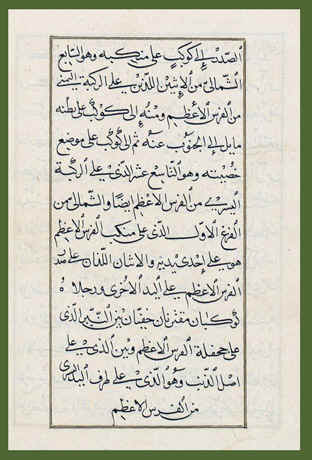 الصدر إلى كوكب على منكبه وهو التابع
الشمالي من الاثنين اللذين على الركبة اليمنى
من الفرس الأعظم ومنه إلى كوكب على بطنه
مايل إلى الجنوب عنه ثم إلى كوكب على موضع
خصيته وهو التاسع عشر الذي على الركبة
اليسرى من الفرس الاعظم ايضا والشمالي من
الفرغ الاول الذي على منكب الفرس الاعظم
هو على إحدى يديه والاثنان اللذان على
الفرس الاعظم على اليد الأخرى ورجلاه
كوكبان مقترنان خفيان بين النير الذي
على جحفلة الفرس الاعظم وبين الذي على
اصل الذنب وهو الذي على طرف اليد
من الفرس الاعظم